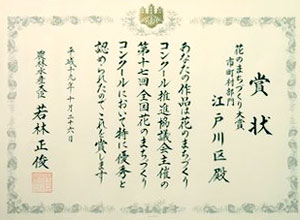 賞状
花のまちづくり大賞
市町村部門
江戸川区殿
あなたの作品は花のまちづくり
コンクール推進協議会主催の
第十七回全国花のまちづくり
コンクールにおいて特に優秀と
認められたのでこれを賞します
平成十九年十月二十六日
農林水産大臣 若林正俊